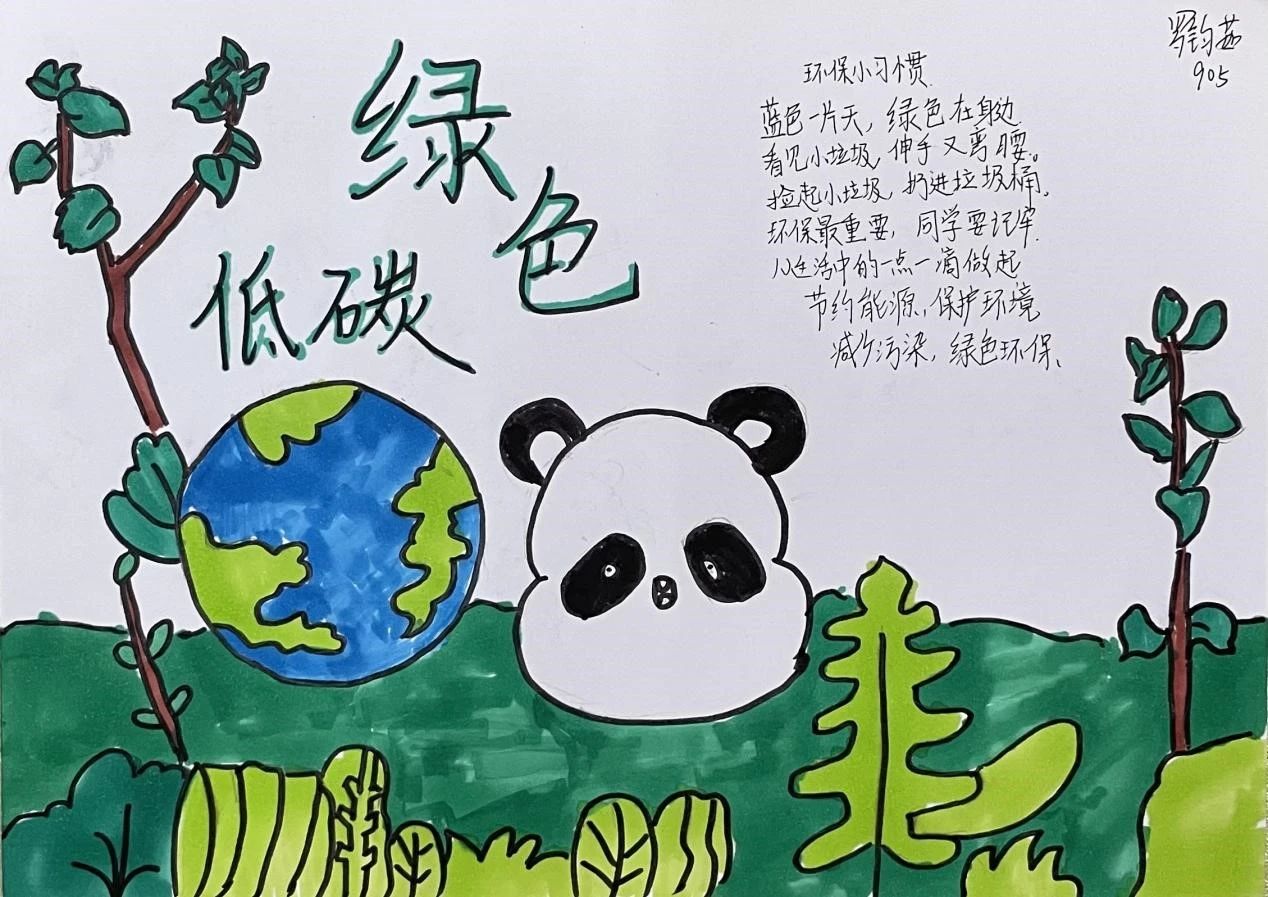 绿色
低碳
罗钧茹
905
环保小习惯
蓝色一片天，绿色在身边.
看见小垃圾，伸手又弯腰。
捡起小垃圾，扔进垃圾桶、
环保最重要，同学要记牢.
从生活中的一点一滴做起，
节约能源，保护环境
减少污染，绿色环保、